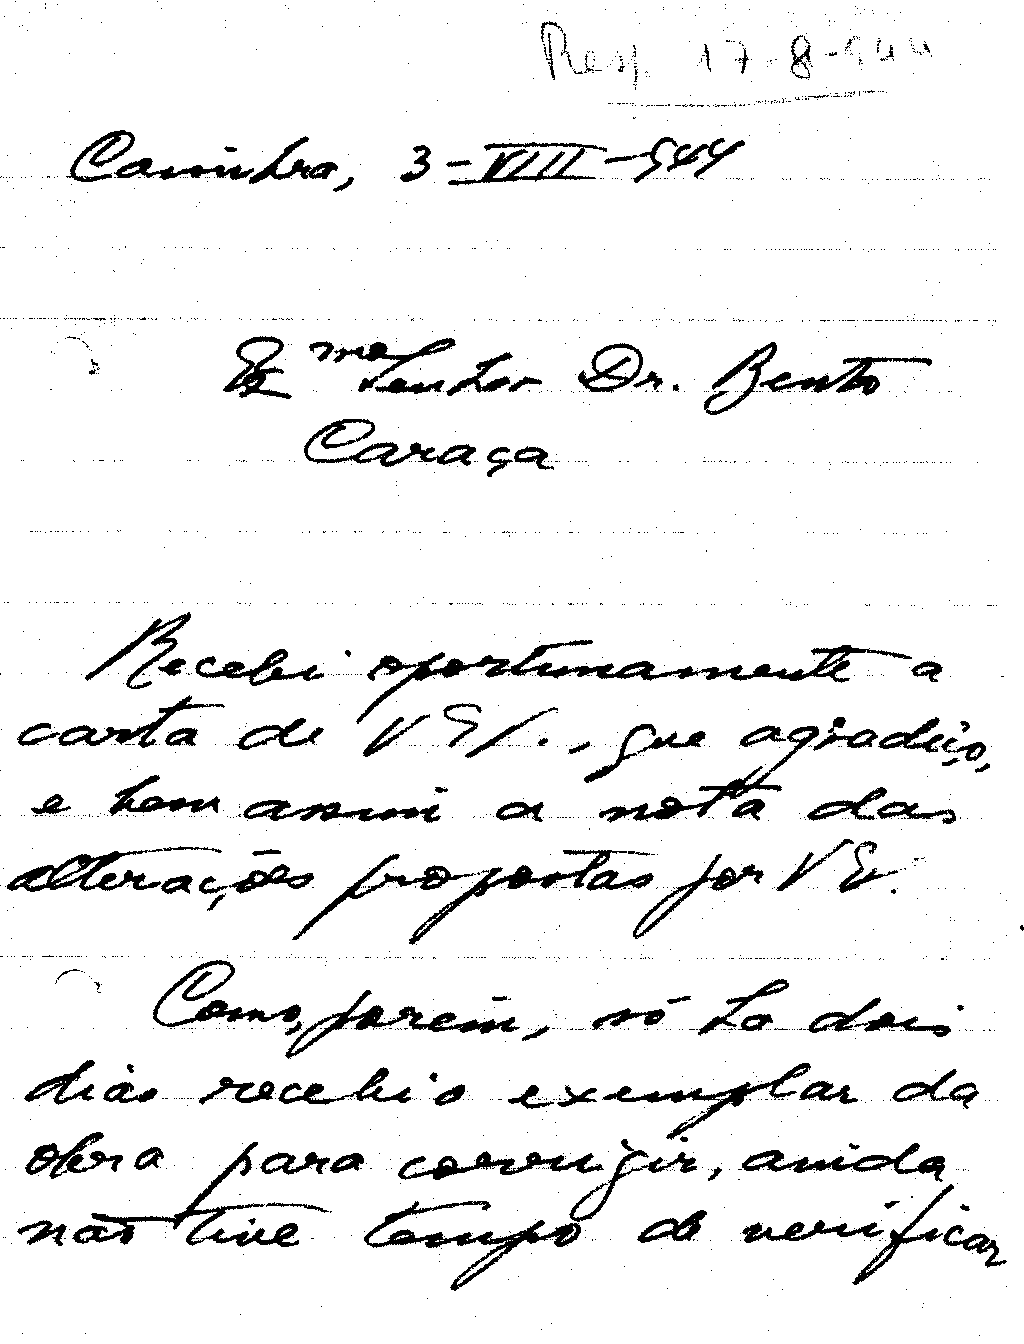 Resp. 17-8-944
Coimbra, 3-VIII-944
Ex.mo Senhor Dr. Bento
Caraça
Recebi oportunamente a
carta de V. Ex.ª, que agradeço,
e bem assim a nota das
alterações propostas por V. E.
Como, porém, só ha dois
dias recebi o exemplar da
obra para corrigir, ainda
não tive tempo de verificar